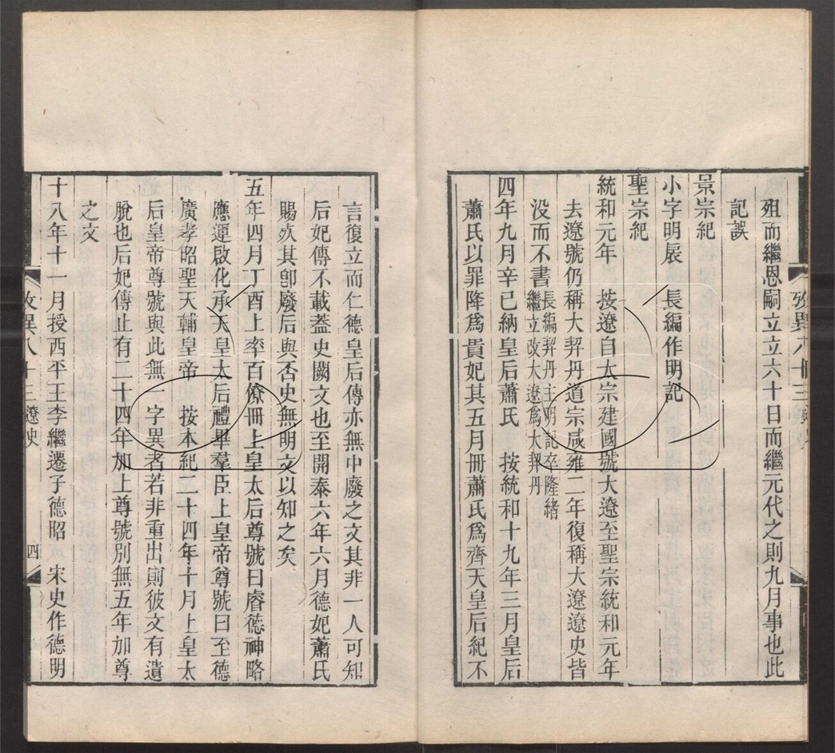 殂而繼恩嗣立立六十日而繼元代之則九月事也此
記誤
景宗紀
小字明扆　長編作明記
聖宗紀
統和元年　按遼自太宗建國號大遼至聖宗統和元年
去遼號仍稱大契丹道宗咸雍二年復稱大遼遼史皆
没而不書長編契丹主明記卒隆緒
繼立改大遼爲大契丹
四年九月辛巳納皇后蕭氏　按統和十九年三月皇后
蕭氏以罪降爲貴妃其五月冊蕭氏爲齊天皇后紀不
言復立而仁德皇后傳亦無中廢之文其非一人可知
后妃傳不載蓋史闕文也至開泰六年六月德妃蕭氏
賜死其卽廢后與否史無明文以知之矣
五年四月丁酉上率百僚冊上皇太后尊號曰睿德神略
應運啟化承天皇太后禮畢羣臣上皇帝尊號曰至德
廣孝昭聖天輔皇帝　按本紀二十四年十月上皇太
后皇帝尊號與此無一字異者若非重出則彼文有遺
脫也后妃傳止有二十四年加上尊號別無五年加尊
之文
十八年十一月授西平王李繼遷子德昭　宋史作德明
攷異八十三遼史　四